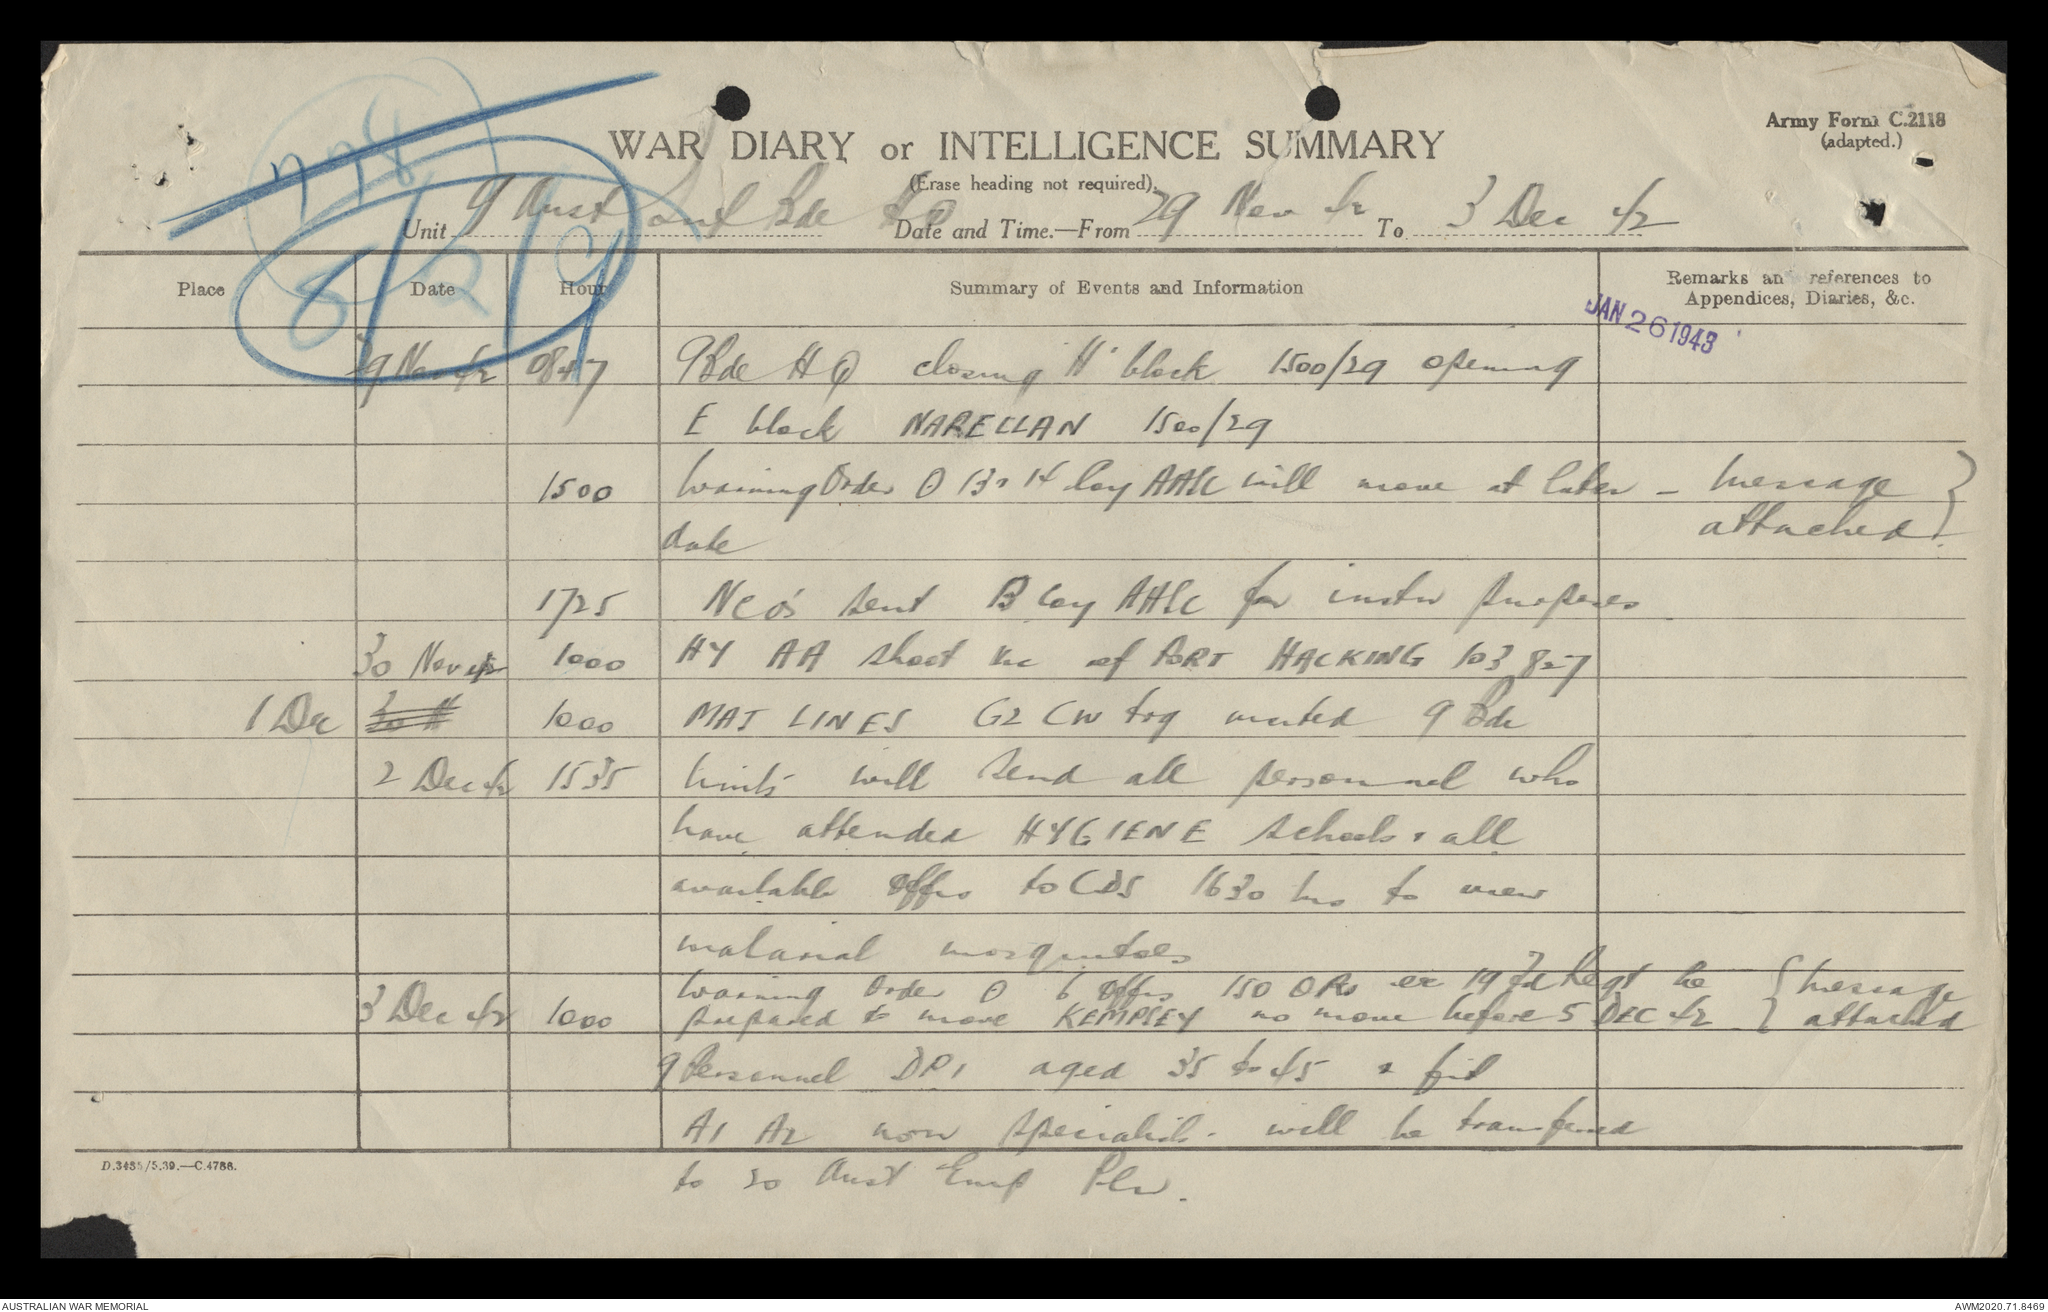 778
8/2/9
Army Form C.2118
(adapted.)
WAR DIARY or INTELLIGENCE SUMMARY
(Erase heading not required).
Unit 9 Aust Inf Bde HQ Date and Time.—From 29 Nov 42 To 3 Dec 42
Place Date Hour Summary of Events and Information Remarks an references to Appendices, Diaries, &c.
JAN 26 1943
29 Nov 42 0847 9 Bde HQ closing 'H' block 1500/29 opening
E block NARELLAN 1500/29
1500 Warning Order O 13 & 14 Coy AASC will move at later — Message
date attached
1725 NCO's sent B Coy AASC for instn purposes
30 Nov 42 1000 HY AA shoot of PORT HACKING 103827
1 Dec 1000 MAJ LINES G2 CW trg visited 9 Bde
2 Dec 42 1535 Units will send all personnel who
have attended HYGIENE schools & all
available offrs to CDS 1630 hrs to view
malarial mosquitoes
3 Dec 42 1000 Warning Order O 6 offrs 150 ORs ex 19 Fd Regt be { Message
prepared to move KEMPSEY no move before 5 DEC 42 attached
9 Personnel DP1 aged 35 to 45 & fit
A1 A2 non specialists will be transferred
to 20 Aust Emp Pln.
D.3485/5.39.—C.4788.
AUSTRALIAN WAR MEMORIAL
AWM2020.71.8469